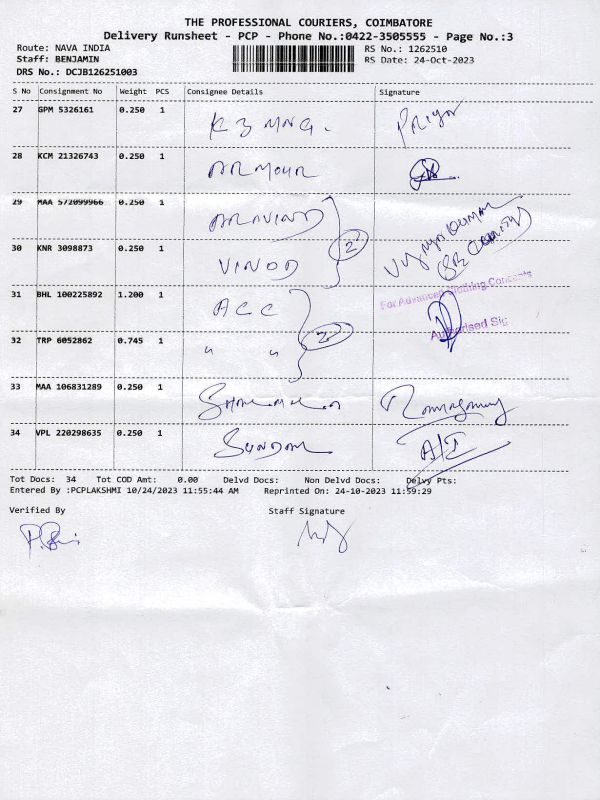 THE PROFESSIONAL COURIERS, COIMBATORE
Delivery Runsheet - PCP - Phone No.:0422-3505555 - Page No.:3
Route: NAVA INDIA
RS No.: 1262510
Staff: BENJAMIN
RS Date: 24-Oct-2023
DRS No.: DCJB126251003
S No Consignment No Weight PCS Consignee Details Signature
27 GPM 5326161 0.250 1
28 KCM 21326743 0.250 1 ARMOUR
29 MAA 572099966 0.250 1 ARAVIND
2
30 KNR 3098873 0.250 1 VINOD
For Advanced Clothing Concepts
31 BHL 100225892 1.200 1 ACC
Authorised Sig
32 TRP 6052862 0.745 1 " " 2
33 MAA 106831289 0.250 1
34 VPL 220298635 0.250 1 SUNDAR
Tot Docs: 34 Tot COD Amt: 0.00 Delvd Docs: Non Delvd Docs: Delvy Pts:
Entered By :PCPLAKSHMI 10/24/2023 11:55:44 AM Reprinted On: 24-10-2023 11:59:29
Verified By Staff Signature